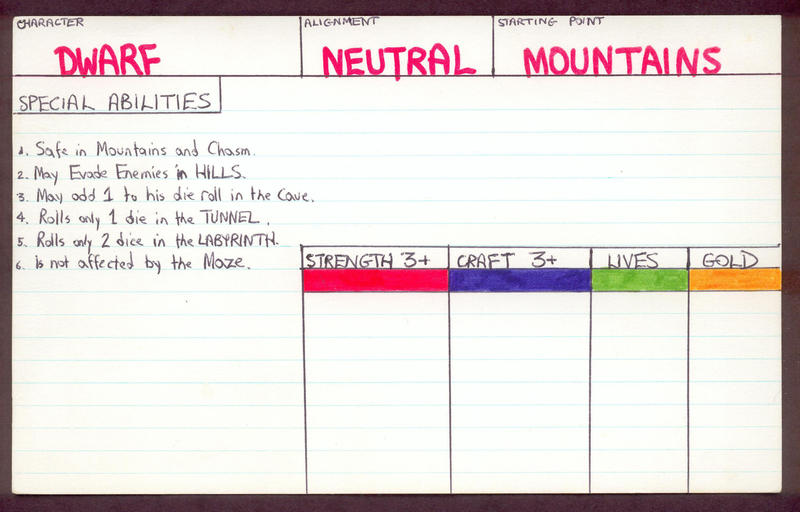 CHARACTER
DWARF
ALIGNMENT
NEUTRAL
STARTING POINT
MOUNTAINS
SPECIAL ABILITIES
1. Safe in Mountains and Chasm.
2. May Evade Enemies in HILLS.
3. May add 1 to his die roll in the Cave.
4. Rolls only 1 die in the TUNNEL.
5. Rolls only 2 dice in the LABYRINTH.
6. is not affected by the Maze.
STRENGTH 3+ CRAFT 3+ LIVES GOLD